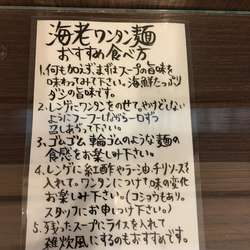 海老ワンタン麺
おすすめ食べ方
1.何も加えず、まずはスープの旨味を
味わってみて下さい。海鮮たっぷり
ダシの旨味です。
2.レンゲにワンタンをのせて。やけどしない
ようにフーフーしながら一口ずつ
召しあがって下さい。
3.ゴムゴム、輪ゴムのような麺の
食感をお楽しみ下さい。
4.レンゲに紅酢やラー油、チリソースを
入れて。ワンタンにつけて味の変化
お楽しみ下さい。(コショウもあり。
スタッフにお申しつけ下さい。)
5.残ったスープにライスを入れて
雑炊風にするのもおすすめです。